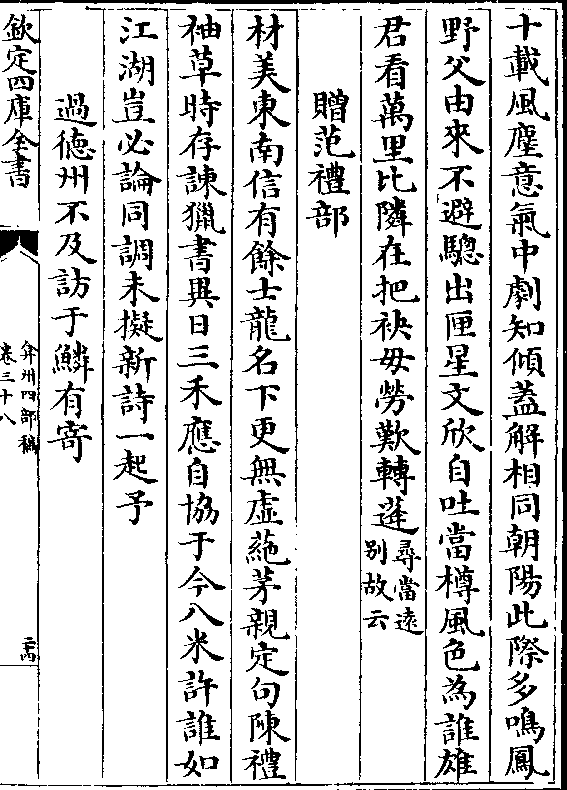 十載風塵意氣中劇知傾蓋解相同朝陽此際多鳴鳳
野父由來不避驄出匣星文欣自吐當樽風色為誰雄
君看萬里比隣在把袂毋勞歎轉蓬尋當遠別故云
贈范禮部
材美東南信有餘士龍名下更無虛蕝茅親定句陳禮
袖草時存諫獵書異日三禾應自協于今八米許誰如
江湖豈必論同調未擬新詩一起予
過德州不及訪于鱗有寄
欽定四庫全書
弇州四部稿
卷三十八